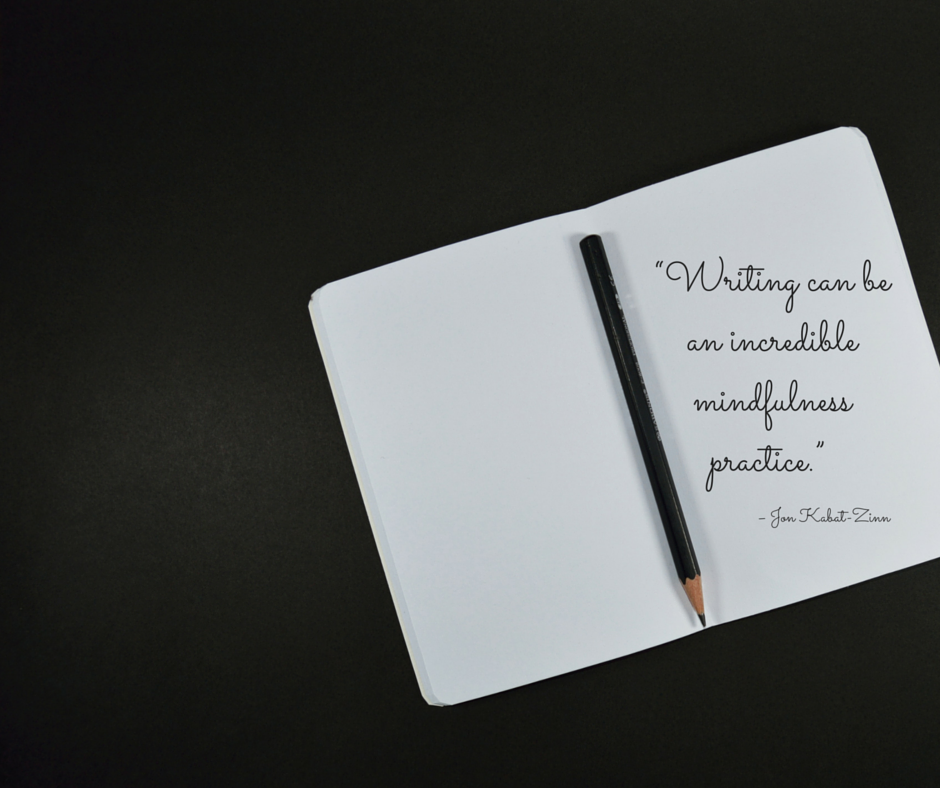 “Writing can be
an incredible
mindfulness
practice.”
– Jon Kabat-Zinn